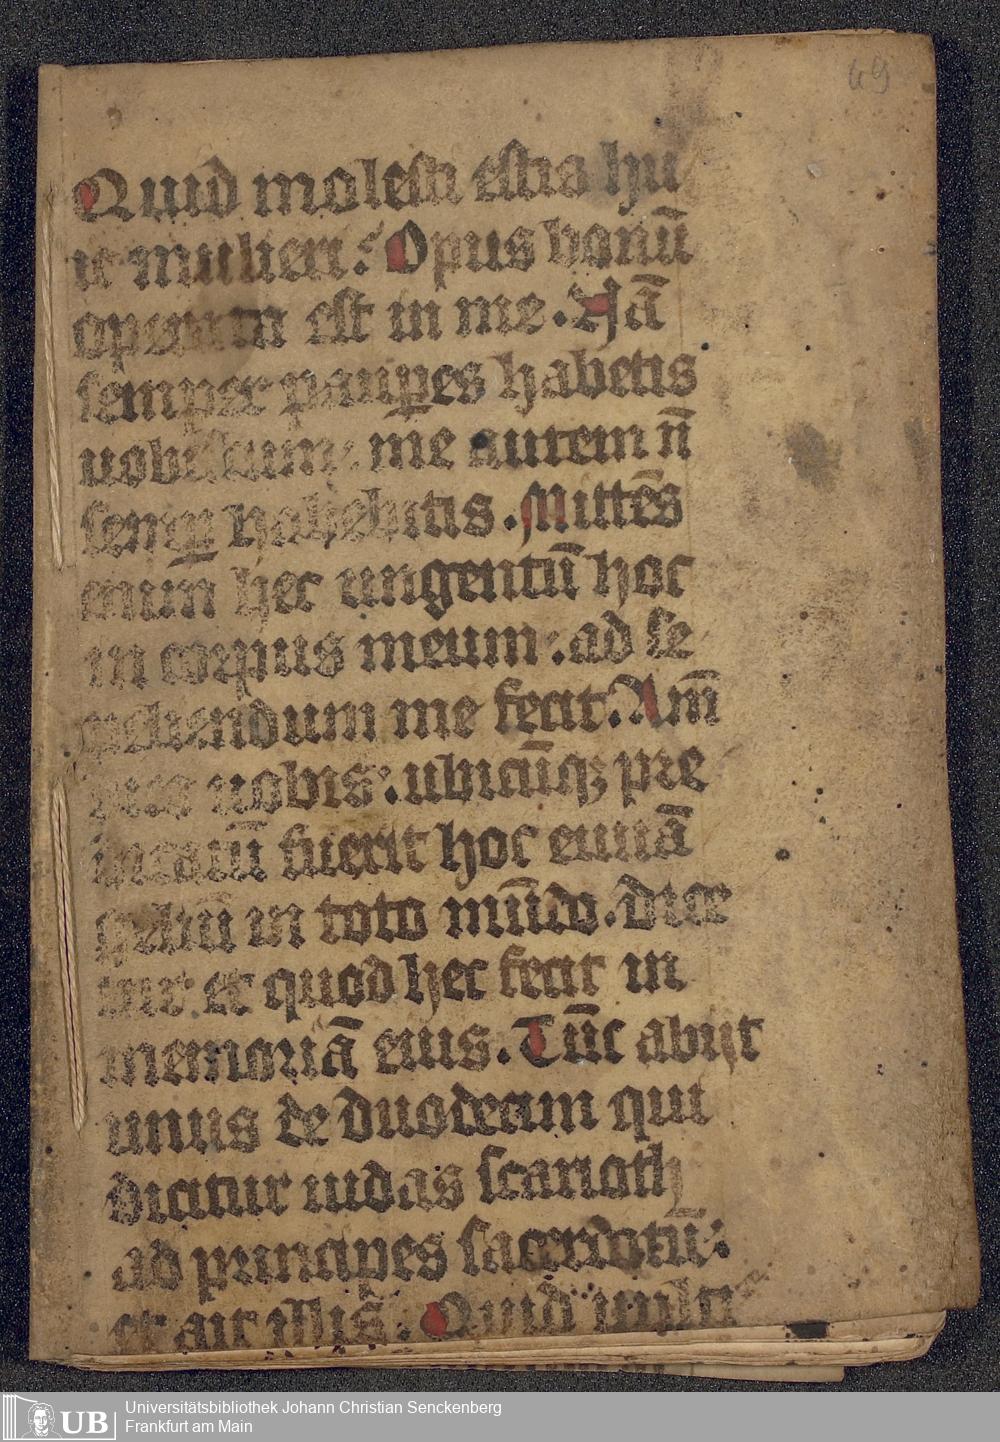 69
Quid molesti estis hu
ic mulieri? Opus bonū
operata est in me. Nā
semper paup̲es habetis
vobiscum: me autem n̄
semp̲ habebitis. Mittēs
enim hec ungentū hoc
in corpus meum: ad se
peliendum me fecit. Am̄
dico vobis: ubicūqꝫ pre
dicatū fuerit hoc euuā
geliū in toto mūdo. dice
tur et quod hec fecit in
memoriā eius. Tūc abijt
unus de duodecim qui
dicitur iudas scarioth
ad principes sacerdotū:
et ait illis: Quid vultis
UB
Universitätsbibliothek Johann Christian Senckenberg
Frankfurt am Main